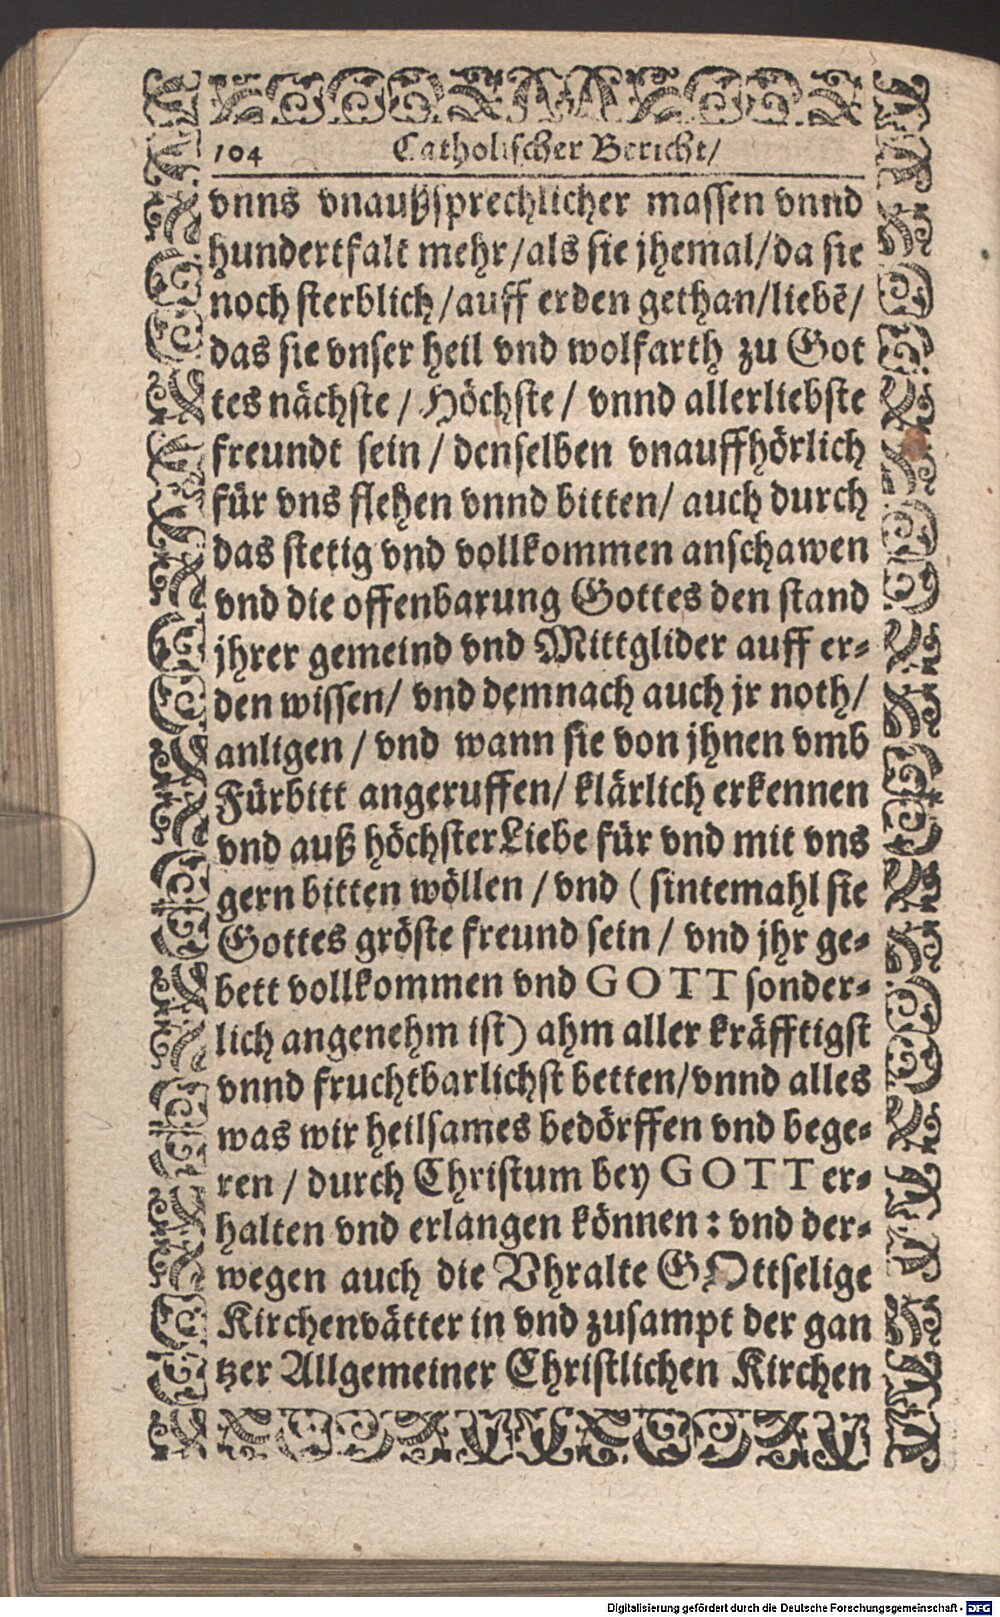 104 Catholischer Bericht/
vnns vnaußsprechlicher massen vnnd
hundertfalt mehr/als sie jhemal/da sie
noch sterblich/auff erden gethan/liebē/
das sie vnser heil vnd wolfarth zu Got
tes nächste/ Höchste/ vnnd allerliebste
freundt sein/ denselben vnauffhörlich
für vns flehen vnnd bitten/ auch durch
das stetig vnd vollkommen anschawen
vnd die offenbarung Gottes den stand
jhrer gemeind vnd Mittglider auff er-
den wissen/ vnd demnach auch jr noth/
anligen/ vnd wann sie von jhnen vmb
Fürbitt angeruffen/ klärlich erkennen
vnd auß höchster Liebe für vnd mit vns
gern bitten wöllen/ vnd (sintemahl sie
Gottes gröste freund sein/ vnd jhr ge-
bett vollkommen vnd GOTT sonder-
lich angenehm ist) ahm aller kräfftigst
vnnd fruchtbarlichst betten/vnnd alles
was wir heilsames bedörffen vnd bege-
ren/ durch Christum bey GOTT er-
halten vnd erlangen können: vnd der-
wegen auch die Vhralte GOttselige
Kirchenvätter in vnd zusampt der gan
tzer Allgemeiner Christlichen Kirchen
Digitalisierung gefördert durch die Deutsche Forschungsgemeinschaft - DFG